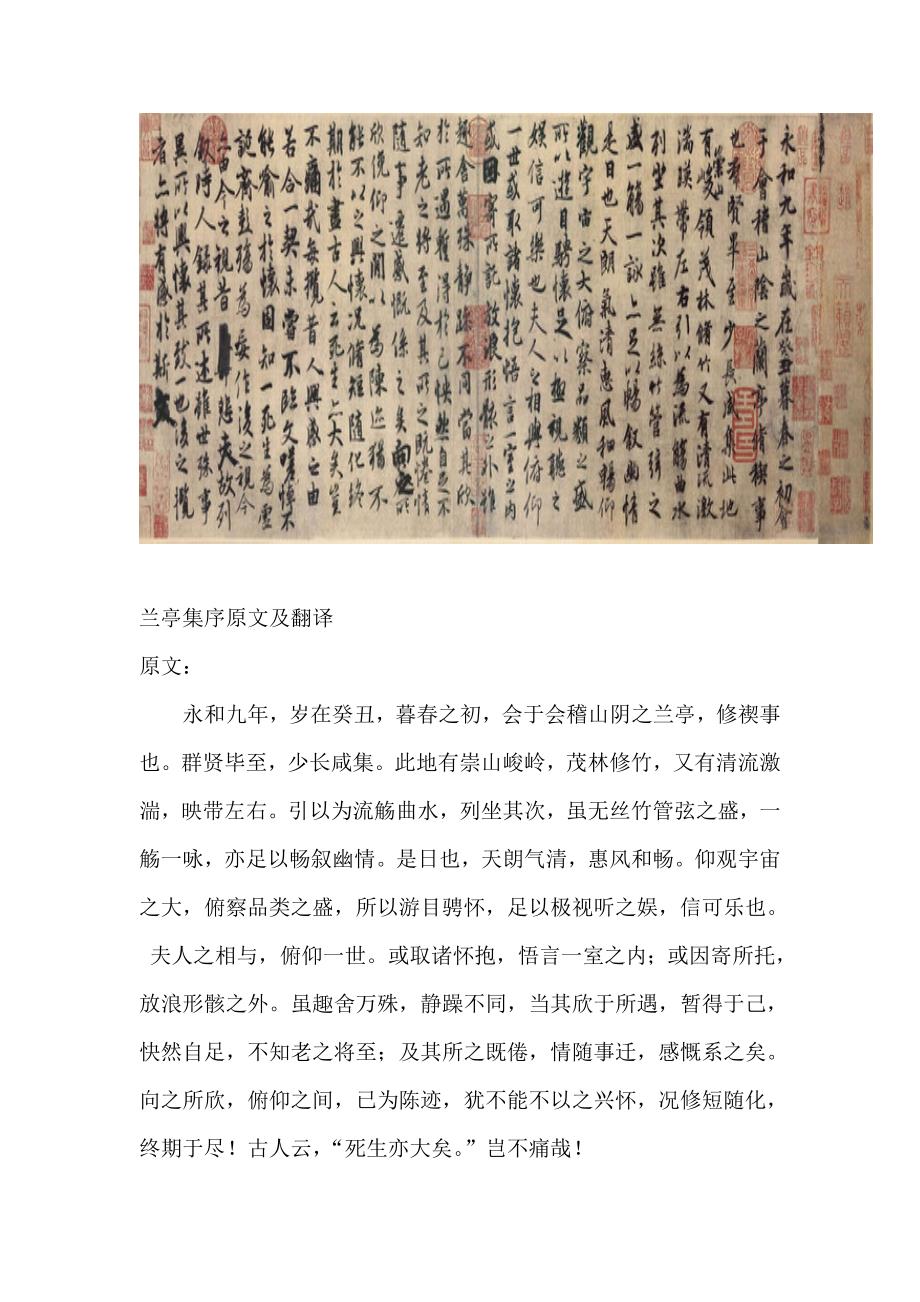 永和九年歲在癸丑暮春之初會
于會稽山陰之蘭亭脩禊事
也群賢畢至少長咸集此地
有崇山峻領茂林脩竹又有清流激
湍暎帶左右引以為流觴曲水
列坐其次雖無絲竹管弦之
盛一觴一詠亦足以暢叙幽情
是日也天朗氣清惠風和暢仰
觀宇宙之大俯察品類之盛
所以遊目騁懷足以極視聽之
娛信可樂也夫人之相與俯仰
一世或取諸懷抱悟言一室之內
或因寄所託放浪形骸之外雖
趣舍萬殊靜躁不同當其欣
於所遇暫得於己怏然自足不
知老之將至及其所之既惓情
隨事遷感慨係之矣向之所
欣俛仰之閒以為陳迹猶不
能不以之興懷況脩短隨化終
期於盡古人云死生亦大矣豈
不痛哉每攬昔人興感之由
若合一契未嘗不臨文嗟悼不
能喻之於懷固知一死生為虛
誕齊彭殤為妄作後之視今
亦由今之視昔悲夫故列
叙時人錄其所述雖世殊事
異所以興懷其致一也後之攬
者亦將有感於斯文
兰亭集序原文及翻译
原文：
永和九年，岁在癸丑，暮春之初，会于会稽山阴之兰亭，修禊事
也。群贤毕至，少长咸集。此地有崇山峻岭，茂林修竹，又有清流激
湍，映带左右。引以为流觞曲水，列坐其次，虽无丝竹管弦之盛，一
觞一咏，亦足以畅叙幽情。是日也，天朗气清，惠风和畅。仰观宇宙
之大，俯察品类之盛，所以游目骋怀，足以极视听之娱，信可乐也。
夫人之相与，俯仰一世。或取诸怀抱，悟言一室之内；或因寄所托，
放浪形骸之外。虽趣舍万殊，静躁不同，当其欣于所遇，暂得于己，
快然自足，不知老之将至；及其所之既倦，情随事迁，感慨系之矣。
向之所欣，俯仰之间，已为陈迹，犹不能不以之兴怀，况修短随化，
终期于尽！古人云，“死生亦大矣。”岂不痛哉！